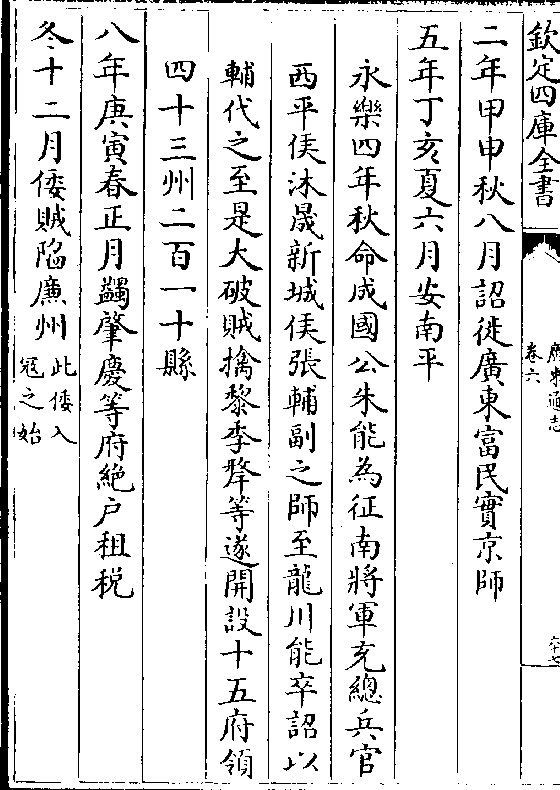 欽定四庫全書
廣東通志
卷六
二年甲申秋八月詔徙廣東富民實京師
五年丁亥夏六月安南平
永樂四年秋命成國公朱能為征南將軍充總兵官
西平侯沐晟新城侯張輔副之師至龍川能卒詔以
輔代之至是大破賊擒黎季犛等遂開設十五府領
四十三州二百一十縣
八年庚寅春正月蠲肇慶等府絶户租税
冬十二月倭賊陷廉州此倭入
寇之始